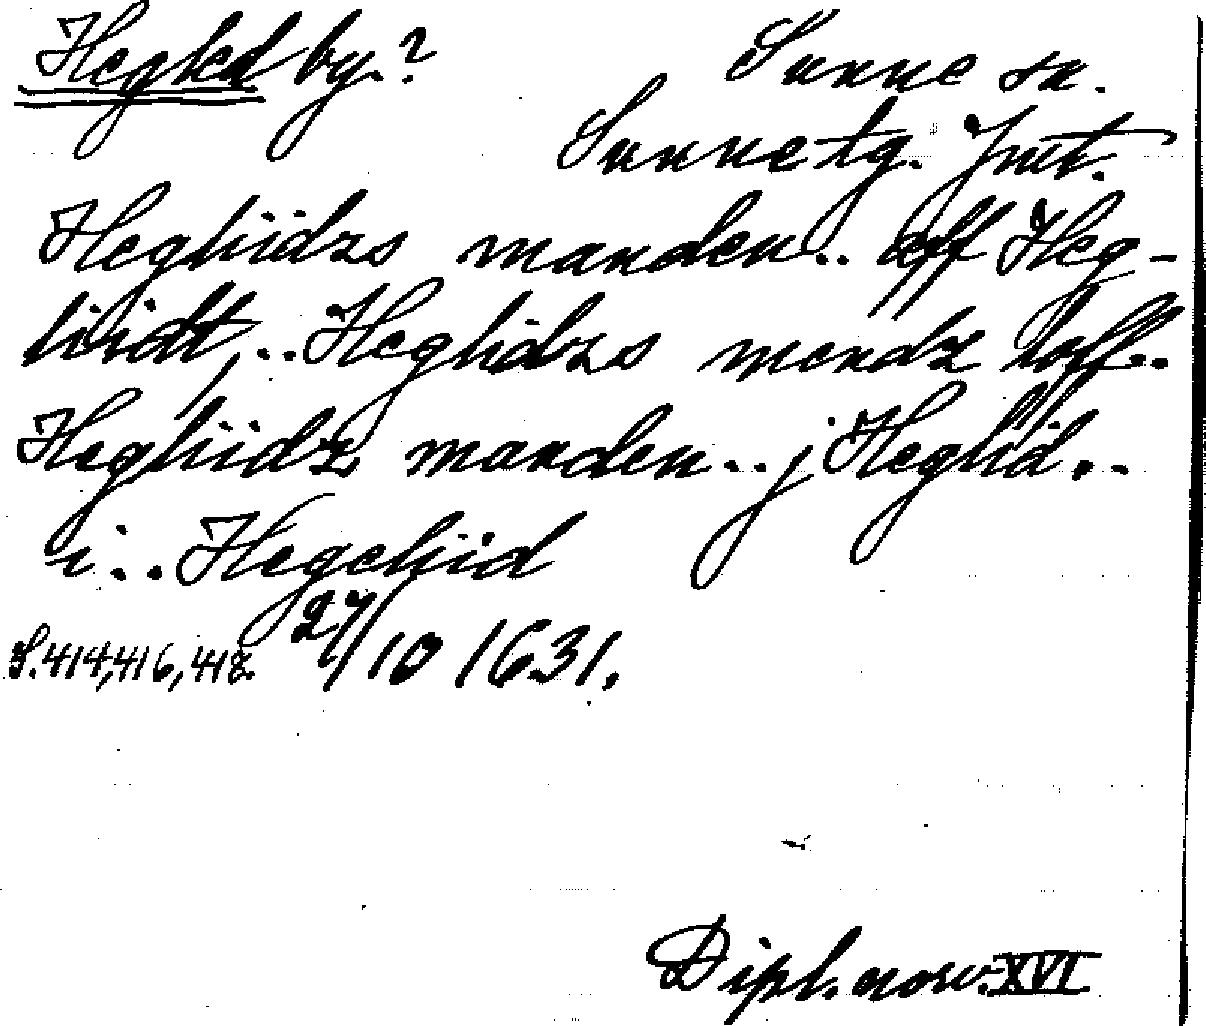 Hegled by.?
Sunne sn.
Sunne tg. Jmt.
Hegliidzs manden.. aff Heg-
liidt,.. Heglidzs mendz loff..
Hegliidz manden.. j Heglid..
i... Hegeliid
S. 414, 416, 418. 27/10 1631.
Dipl. norv. XVI